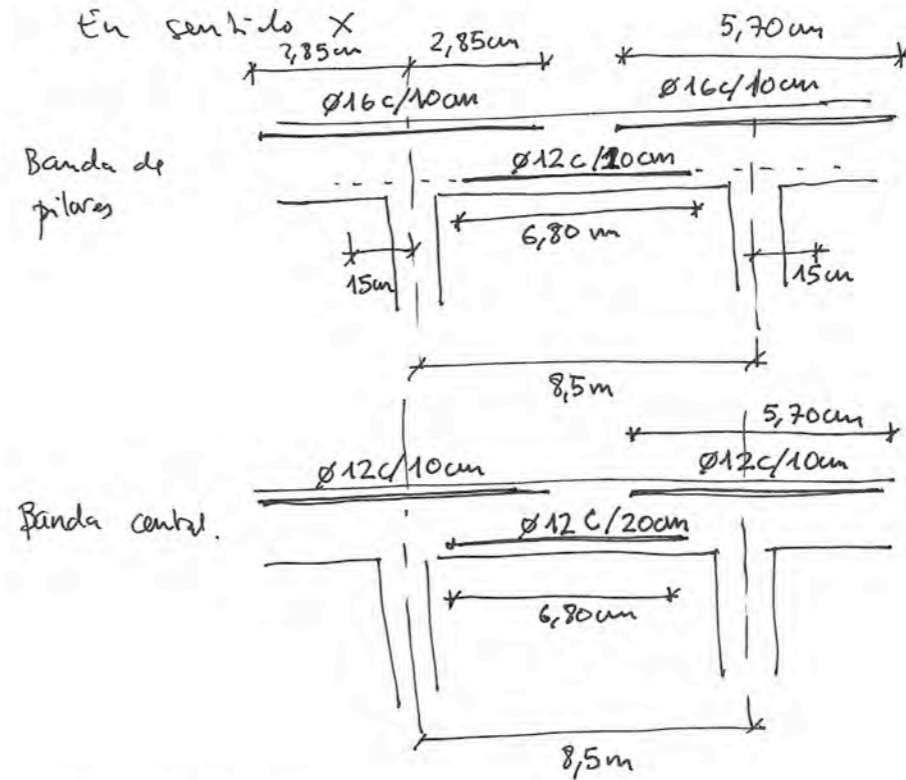 En sentido X
2,85cm 2,85cm 5,70cm
Ø16c/10cm Ø16c/10cm
Banda de
pilares
Ø12c/10cm
6,80 m
15cm 15cm
8,5m
5,70cm
Ø12c/10cm Ø12c/10cm
Banda central.
Ø12 c/20cm
6,80cm
8,5m